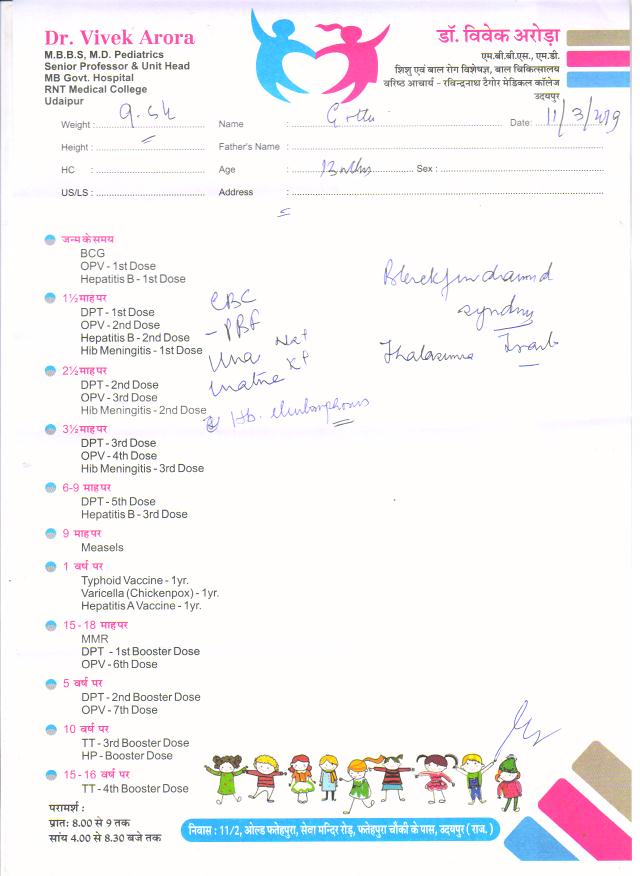 Dr. Vivek Arora
M.B.B.S, M.D. Pediatrics
Senior Professor & Unit Head
MB Govt. Hospital
RNT Medical College
Udaipur
डॉ. विवेक अरोड़ा
एम.बी.बी.एस., एम.डी.
शिशु एवं बाल रोग विशेषज्ञ, बाल चिकित्सालय
वरिष्ठ आचार्य - रविन्द्रनाथ टैगोर मेडिकल कॉलेज
उदयपुर
Weight : Name : Date: 11/3/2019
Height : Father's Name :
HC : Age : Sex :
US/LS : Address :
जन्म के समय
BCG
OPV - 1st Dose
Hepatitis B - 1st Dose
1½ माह पर
DPT - 1st Dose
OPV - 2nd Dose
Hepatitis B - 2nd Dose
Hib Meningitis - 1st Dose
2½ माह पर
DPT - 2nd Dose
OPV - 3rd Dose
Hib Meningitis - 2nd Dose
CBC
- PBF
Urea Na+
K+
Hb. electrophoresis
syndrome
Thalassemia Trait
3½ माह पर
DPT - 3rd Dose
OPV - 4th Dose
Hib Meningitis - 3rd Dose
6-9 माह पर
DPT - 5th Dose
Hepatitis B - 3rd Dose
9 माह पर
Measels
1 वर्ष पर
Typhoid Vaccine - 1yr.
Varicella (Chickenpox) - 1yr.
Hepatitis A Vaccine - 1yr.
15 - 18 माह पर
MMR
DPT - 1st Booster Dose
OPV - 6th Dose
5 वर्ष पर
DPT - 2nd Booster Dose
OPV - 7th Dose
10 वर्ष पर
TT - 3rd Booster Dose
HP - Booster Dose
15 - 16 वर्ष पर
TT - 4th Booster Dose
परामर्श :
प्रात: 8.00 से 9 तक
सांय 4.00 से 8.30 बजे तक
निवास : 11/2, ओल्ड फतेहपुरा, सेवा मन्दिर रोड़, फतेहपुरा चौकी के पास, उदयपुर ( राज. )